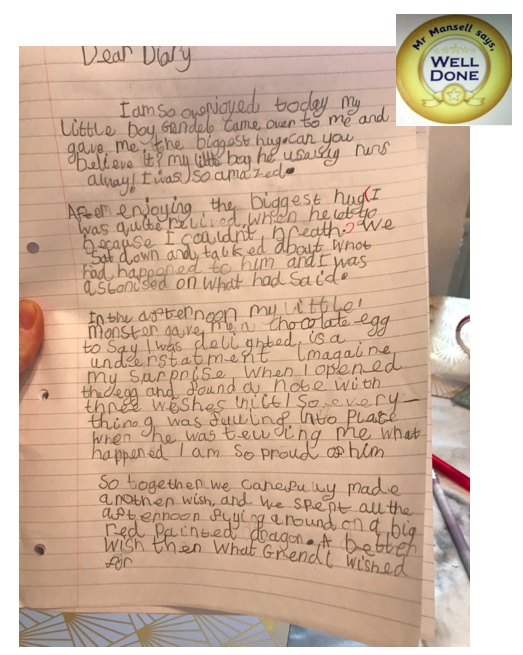 Mr Mansell says,
WELL
DONE
Dear Diary
I am so overjoyed today my
Little boy Grendel came over to me and
gave me the biggest hug. can you
believe it? my little boy he usually runs
away! I was so amazed.
After enjoying the biggest hug (I
was quite relived when he let go
because I couldn't breath.) We
sat down and talked about what
had happened to him and I was
astonised on what had said.
In the afternoon my little
monster gave me a chocolate egg
to say I was delighted, is a
understatment Imagaine
my surprise when I opened
the egg and found a note with
three wishes in it! So every-
thing was falling into place
when he was telling me what
happened I am so proud of him
So together we carefully made
another wish, and we spent all the
afternoon flying around on a big
red painted dragon. A better
wish then what Grendl wished
for